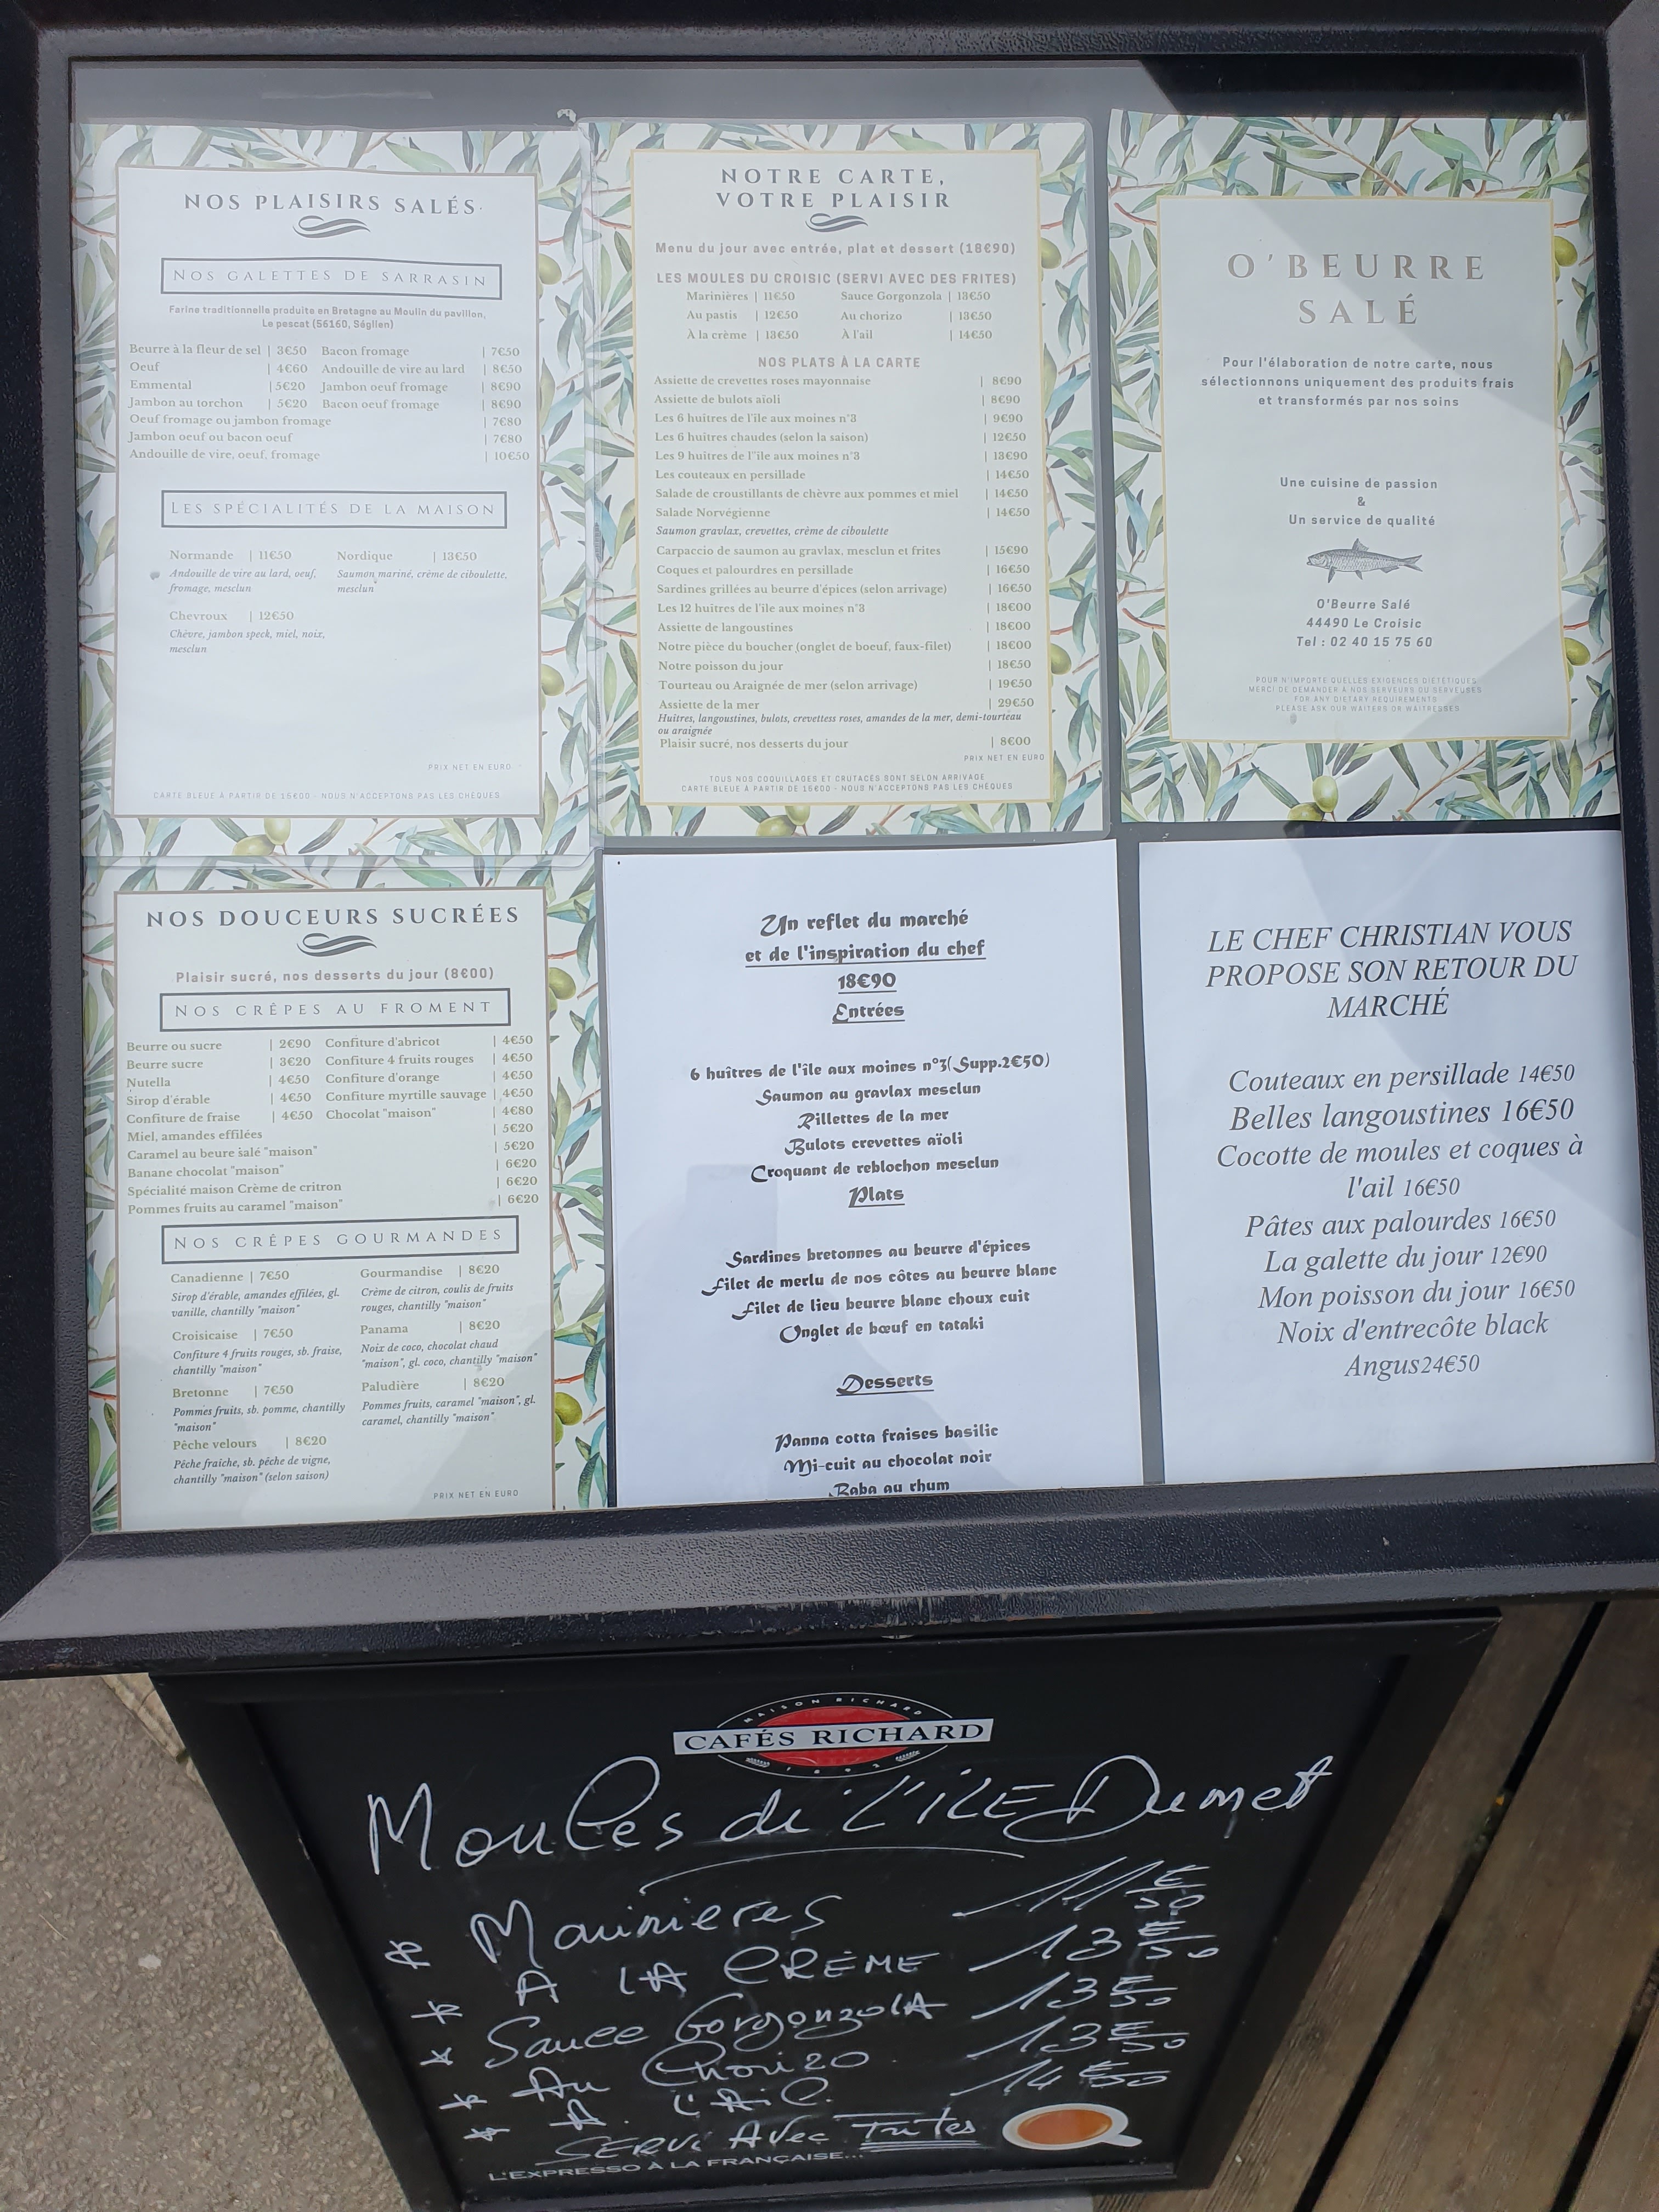 NOS PLAISIRS SALÉS
NOS GALETTES DE SARRASIN
Farine traditionnelle produite en Bretagne au Moulin du pavillon,
Le pescat (56160, Séglien)
Beurre à la fleur de sel | 3€50 Bacon fromage | 7€50
Oeuf | 4€60 Andouille de vire au lard | 8€50
Emmental | 5€20 Jambon oeuf fromage | 8€90
Jambon au torchon | 5€20 Bacon oeuf fromage | 8€90
Oeuf fromage ou jambon fromage | 7€80
Jambon oeuf ou bacon oeuf | 7€80
Andouille de vire, oeuf, fromage | 10€50
LES SPÉCIALITÉS DE LA MAISON
Normande | 11€50 Nordique | 13€50
Andouille de vire au lard, oeuf, Saumon mariné, crème de ciboulette,
fromage, mesclun mesclun
Chevroux | 12€50
Chèvre, jambon speck, miel, noix,
mesclun
PRIX NET EN EURO
CARTE BLEUE À PARTIR DE 15€00 - NOUS N'ACCEPTONS PAS LES CHÈQUES
NOTRE CARTE,
VOTRE PLAISIR
Menu du jour avec entrée, plat et dessert (18€90)
LES MOULES DU CROISIC (SERVI AVEC DES FRITES)
Marinières | 11€50 Sauce Gorgonzola | 13€50
Au pastis | 12€50 Au chorizo | 13€50
À la crème | 13€50 À l'ail | 14€50
NOS PLATS À LA CARTE
Assiette de crevettes roses mayonnaise | 8€90
Assiette de bulots aïoli | 8€90
Les 6 huîtres de l'île aux moines n°3 | 9€90
Les 6 huîtres chaudes (selon la saison) | 12€50
Les 9 huîtres de l''île aux moines n°3 | 13€90
Les couteaux en persillade | 14€50
Salade de croustillants de chèvre aux pommes et miel | 14€50
Salade Norvégienne | 14€50
Saumon gravlax, crevettes, crème de ciboulette
Carpaccio de saumon au gravlax, mesclun et frites | 15€90
Coques et palourdres en persillade | 16€50
Sardines grillées au beurre d'épices (selon arrivage) | 16€50
Les 12 huîtres de l'île aux moines n°3 | 18€00
Assiette de langoustines | 18€00
Notre pièce du boucher (onglet de boeuf, faux-filet) | 18€00
Notre poisson du jour | 18€50
Tourteau ou Araignée de mer (selon arrivage) | 19€50
Assiette de la mer | 29€50
Huîtres, langoustines, bulots, crevettess roses, amandes de la mer, demi-tourteau
ou araignée
Plaisir sucré, nos desserts du jour | 8€00
PRIX NET EN EURO
TOUS NOS COQUILLAGES ET CRUTACÉS SONT SELON ARRIVAGE
CARTE BLEUE À PARTIR DE 15€00 - NOUS N'ACCEPTONS PAS LES CHÈQUES
O'BEURRE
SALÉ
Pour l'élaboration de notre carte, nous
sélectionnons uniquement des produits frais
et transformés par nos soins
Une cuisine de passion
&
Un service de qualité
O'Beurre Salé
44490 Le Croisic
Tel : 02 40 15 75 60
POUR N'IMPORTE QUELLES EXIGENCES DIÉTÉTIQUES
MERCI DE DEMANDER À NOS SERVEURS OU SERVEUSES
FOR ANY DIETARY REQUIREMENTS
PLEASE ASK OUR WAITERS OR WAITRESSES
NOS DOUCEURS SUCRÉES
Plaisir sucré, nos desserts du jour (8€00)
NOS CRÊPES AU FROMENT
Beurre ou sucre | 2€90 Confiture d'abricot | 4€50
Beurre sucre | 3€20 Confiture 4 fruits rouges | 4€50
Nutella | 4€50 Confiture d'orange | 4€50
Sirop d'érable | 4€50 Confiture myrtille sauvage | 4€50
Confiture de fraise | 4€50 Chocolat "maison" | 4€80
Miel, amandes effilées | 5€20
Caramel au beure salé "maison" | 5€20
Banane chocolat "maison" | 6€20
Spécialité maison Crème de critron | 6€20
Pommes fruits au caramel "maison" | 6€20
NOS CRÊPES GOURMANDES
Canadienne | 7€50 Gourmandise | 8€20
Sirop d'érable, amandes effilées, gl. Crème de citron, coulis de fruits
vanille, chantilly "maison" rouges, chantilly "maison"
Croisicaise | 7€50 Panama | 8€20
Confiture 4 fruits rouges, sb. fraise, Noix de coco, chocolat chaud
chantilly "maison" "maison", gl. coco, chantilly "maison"
Bretonne | 7€50 Paludière | 8€20
Pommes fruits, sb. pomme, chantilly Pommes fruits, caramel "maison", gl.
"maison" caramel, chantilly "maison"
Pêche velours | 8€20
Pêche fraîche, sb. pêche de vigne,
chantilly "maison" (selon saison)
PRIX NET EN EURO
Un reflet du marché
et de l'inspiration du chef
18€90
Entrées
6 huîtres de l'île aux moines n°3(Supp.2€50)
Saumon au gravlax mesclun
Rillettes de la mer
Bulots crevettes aïoli
Croquant de reblochon mesclun
Plats
Sardines bretonnes au beurre d'épices
Filet de merlu de nos côtes au beurre blanc
Filet de lieu beurre blanc choux cuit
Onglet de bœuf en tataki
Desserts
Panna cotta fraises basilic
Mi-cuit au chocolat noir
Baba au rhum
LE CHEF CHRISTIAN VOUS
PROPOSE SON RETOUR DU
MARCHÉ
Couteaux en persillade 14€50
Belles langoustines 16€50
Cocotte de moules et coques à
l'ail 16€50
Pâtes aux palourdes 16€50
La galette du jour 12€90
Mon poisson du jour 16€50
Noix d'entrecôte black
Angus24€50
MAISON RICHARD
CAFÉS RICHARD
1892
Moules de L'ILE Dumet
* Marinieres 11€50
* A LA CRÈME 13€50
* Sauce GorgonzolA 13€50
* Au Chorizo 13€50
* A L'Ail 14€50
SERVi Avec Frites
L'EXPRESSO À LA FRANÇAISE...